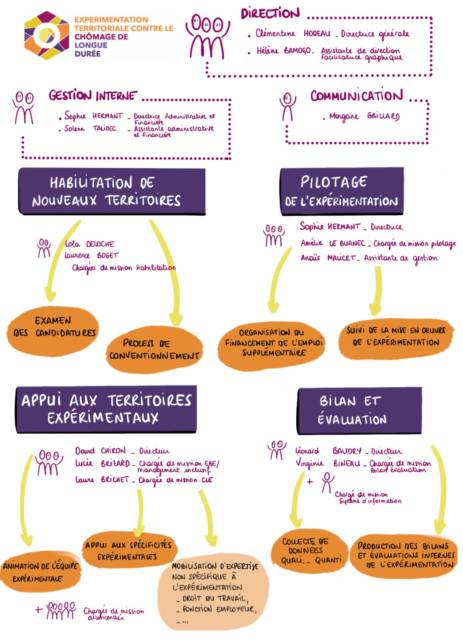 EXPERIMENTATION
TERRITORIALE CONTRE LE
CHÔMAGE DE
LONGUE
DURÉE
DIRECTION
• Clémentine HODEAU _ Directrice générale
• Hélène BAMOGO _ Assistante de direction
Facilitatrice graphique
GESTION INTERNE
• Sophie HERMANT _ Directrice Administrative et
Financière
• Solène TALIDEC _ Assistante administrative
et Financière
COMMUNICATION
• Morgane GAILLARD
HABILITATION DE
NOUVEAUX TERRITOIRES
Lola DELOCHE
Laurence BOGET
Chargées de mission habilitation
EXAMEN
DES CANDIDATURES
PROCESS DE
CONVENTIONNEMENT
PILOTAGE
DE L'EXPÉRIMENTATION
Sophie HERMANT _ Directrice
Amélie LE BUANEC _ Chargée de mission pilotage
Anaïs MAUCET _ Assistante de gestion
ORGANISATION DU
FINANCEMENT DE L'EMPLOI
SUPPLÉMENTAIRE
SUIVI DE LA MISE EN OEUVRE
DE L'EXPÉRIMENTATION
APPUI AUX TERRITOIRES
EXPÉRIMENTAUX
David CHIRON _ Directeur
Lucie BRIZARD _ Chargée de mission EBE/
management inclusif
Laure BRICHET _ Chargée de mission CLE
ANIMATION DE L'ÉQUIPE
EXPÉRIMENTALE
APPUI AUX SPÉCIFICITÉS
EXPÉRIMENTALES
MOBILISATION D'EXPERTISE
NON SPÉCIFIQUE À
L'EXPÉRIMENTATION
_ DROIT DU TRAVAIL,
_ FONCTION EMPLOYEUR,
_ ...
+ Chargés de mission
BILAN ET
ÉVALUATION
Léonard BAUDRY _ Directeur
Virginie BINEAU _ Chargée de mission
bilan évaluation
+
Chargé de mission
Système d'information
COLLECTE DE
DONNÉES
QUALI _ QUANTI
PRODUCTION DES BILANS
ET ÉVALUATIONS INTERNES
DE L'EXPÉRIMENTATION